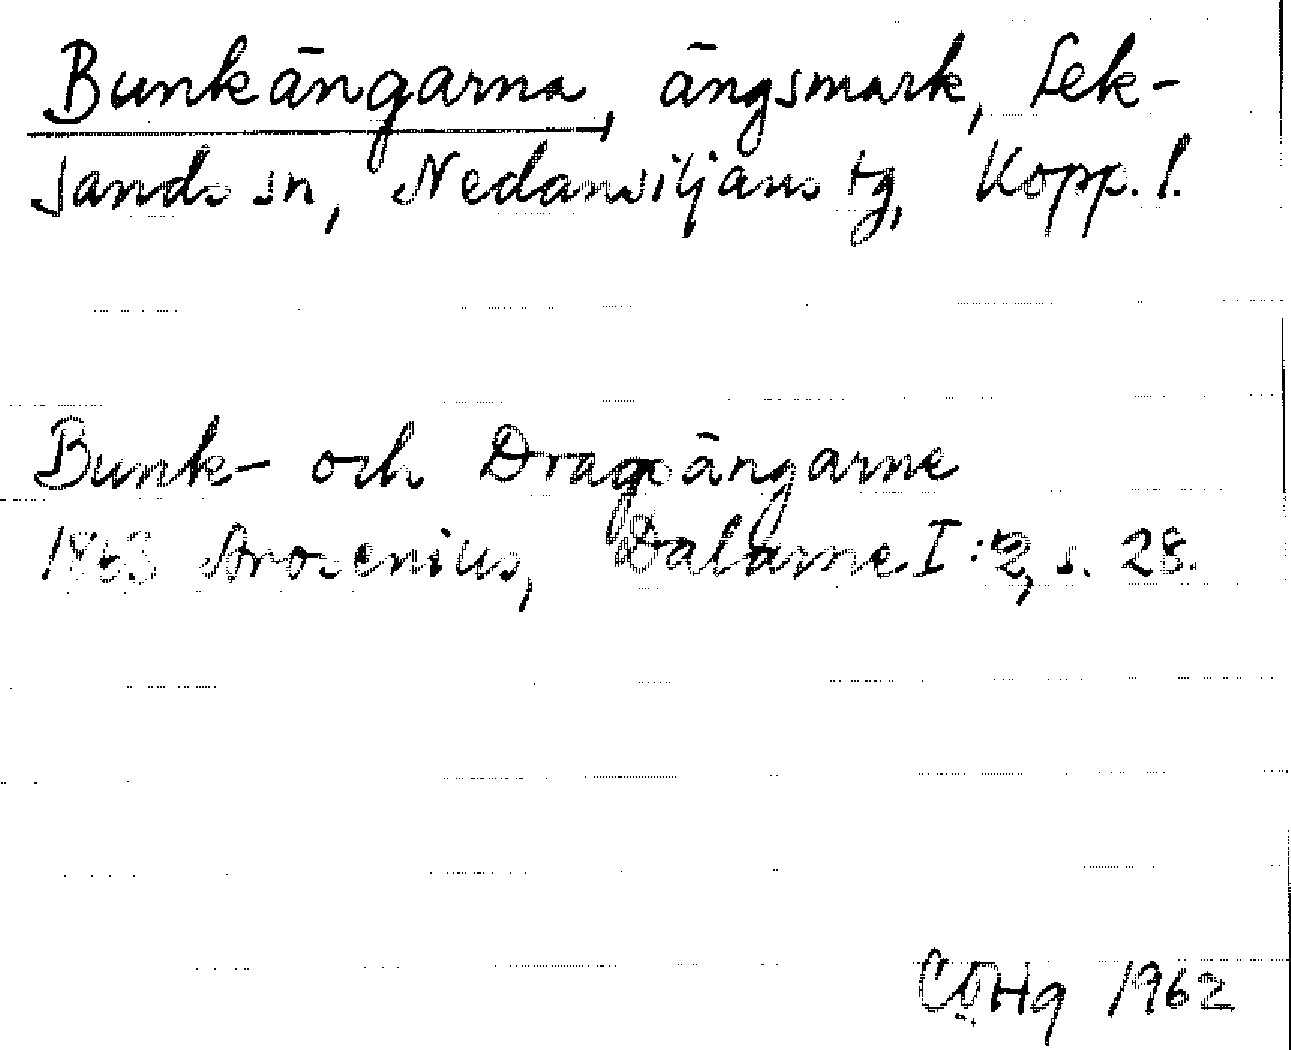 Bunkängarna, ängsmark, Lek-
sands sn, Nedansiljans tg, Kopp. l.
Bunk- och Dragängarne
1863 Arosenius, Dalarne I:2, s. 28.
1962